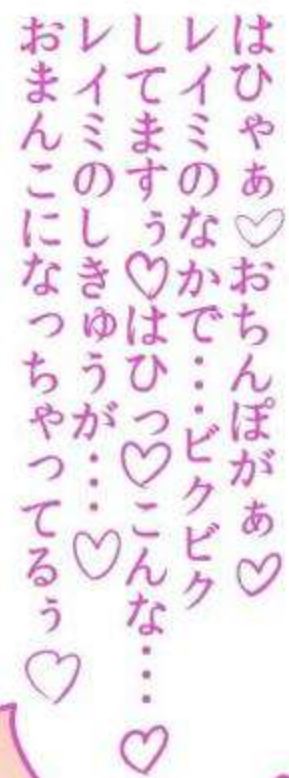 はひゃぁ♡おちんぽがぁ♡
レイミのなかで…ビクビク
してますぅ♡はひっ♡こんな…♡
レイミのしきゅうが…♡
おまんこになっちゃってるぅ♡